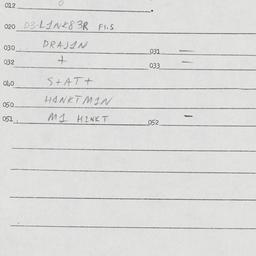 012 0
020 D3-L1NK83R FI.S
030 DRAJ1N 031 —
032 + 033 —
040 S+AT+
050 H1NKTM1N
051 M1 H1NKT 052 -